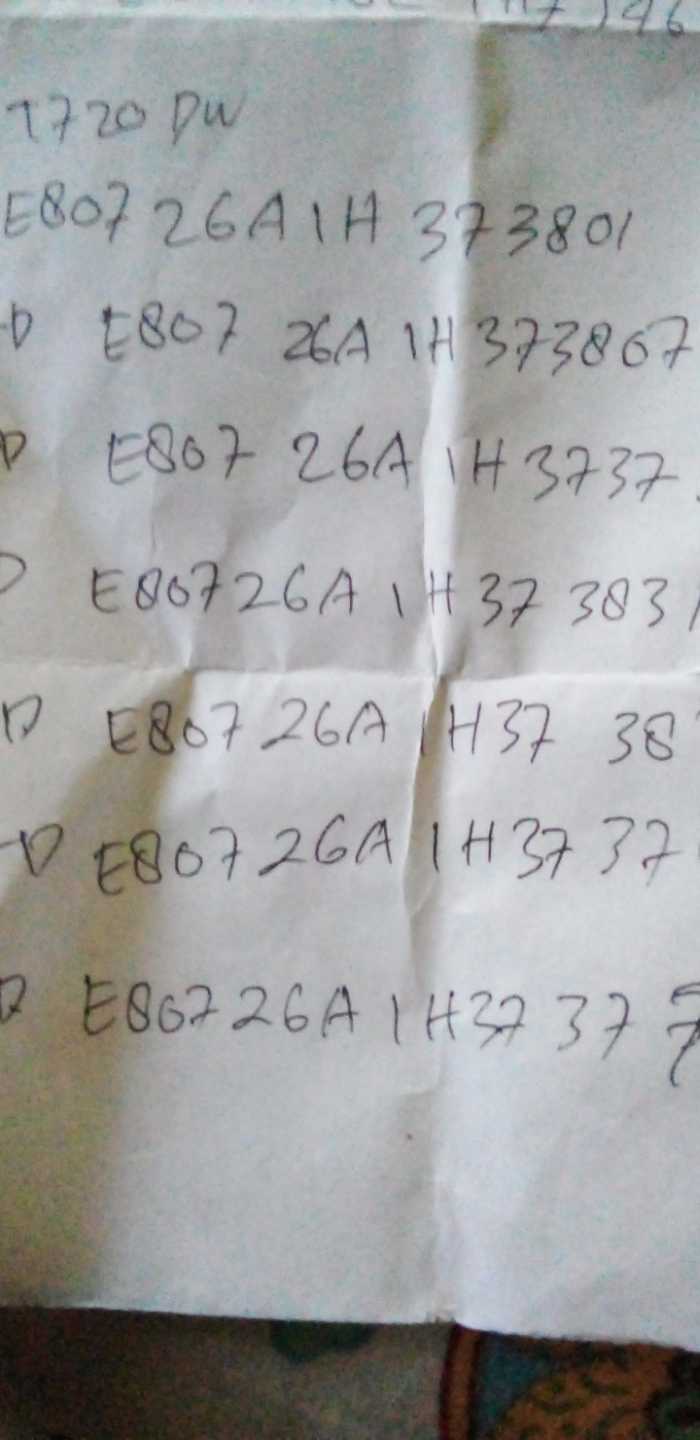 T720 DW
E80726A1H373801
D E807 26A 1H373867
D E807 26A 1H3737
D E80726A 1H37 383
D E80726A 1H37 38
D E80726A 1H37 37
D E80726A 1H37 37